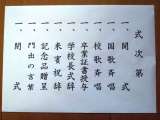 式次第
一、開式
一、国歌斉唱
一、校歌斉唱
一、卒業証書授与
一、学校長式辞
一、来賓祝辞
一、記念品贈呈
一、門出の言葉
一、閉式